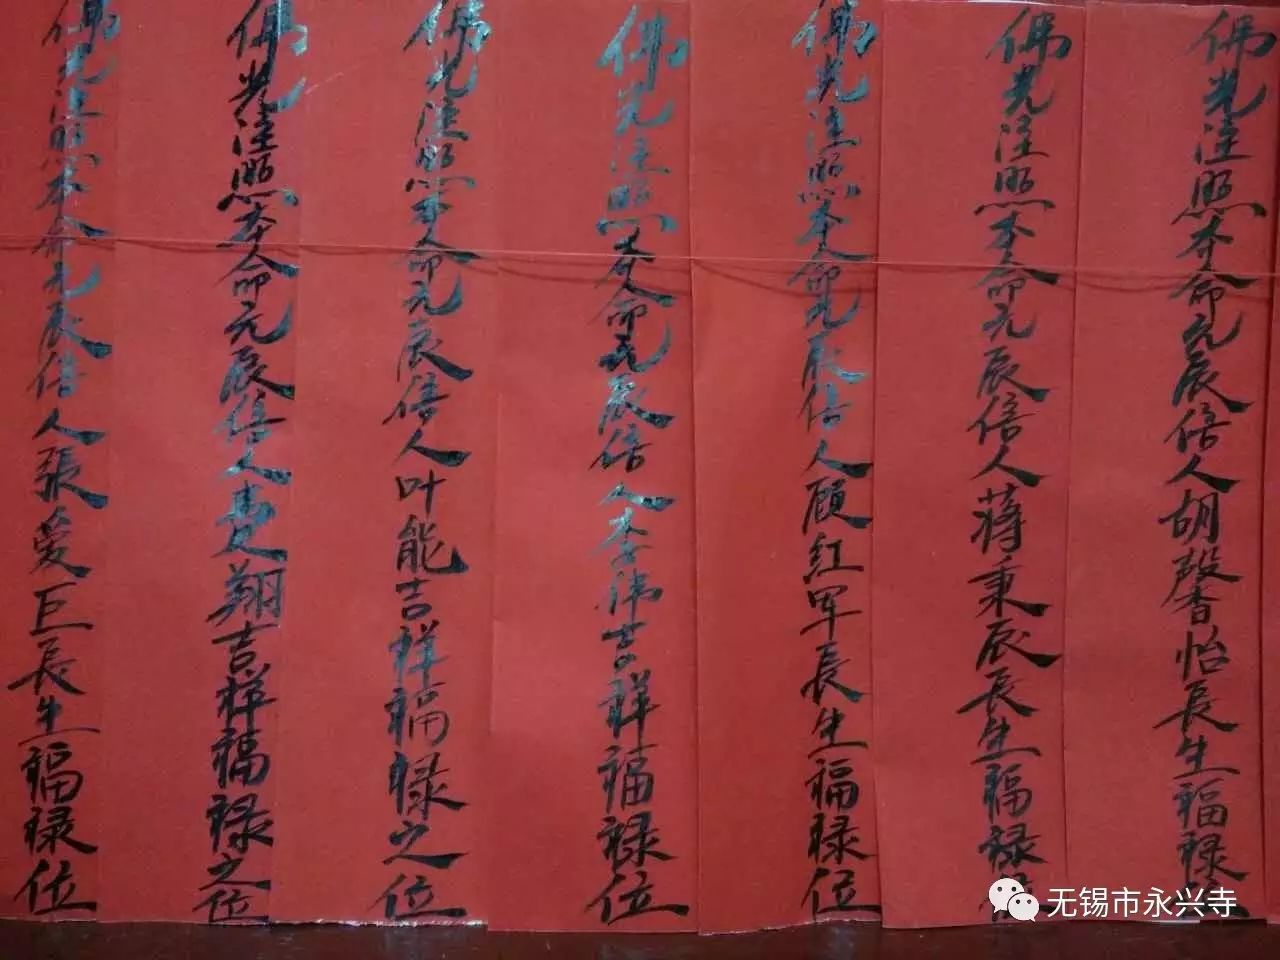 佛光注照本命元辰信人胡馨怡長生福禄位
佛光注照本命元辰信人蒋秉辰長生福禄位
佛光注照本命元辰信人顾红军長生福禄位
佛光注照本命元辰信人李伟吉祥福禄位
佛光注照本命元辰信人叶能吉祥福禄之位
佛光注照本命元辰信人翔吉祥福禄之位
佛光注照本命元辰信人張爱巨長生福禄位
无锡市永兴寺